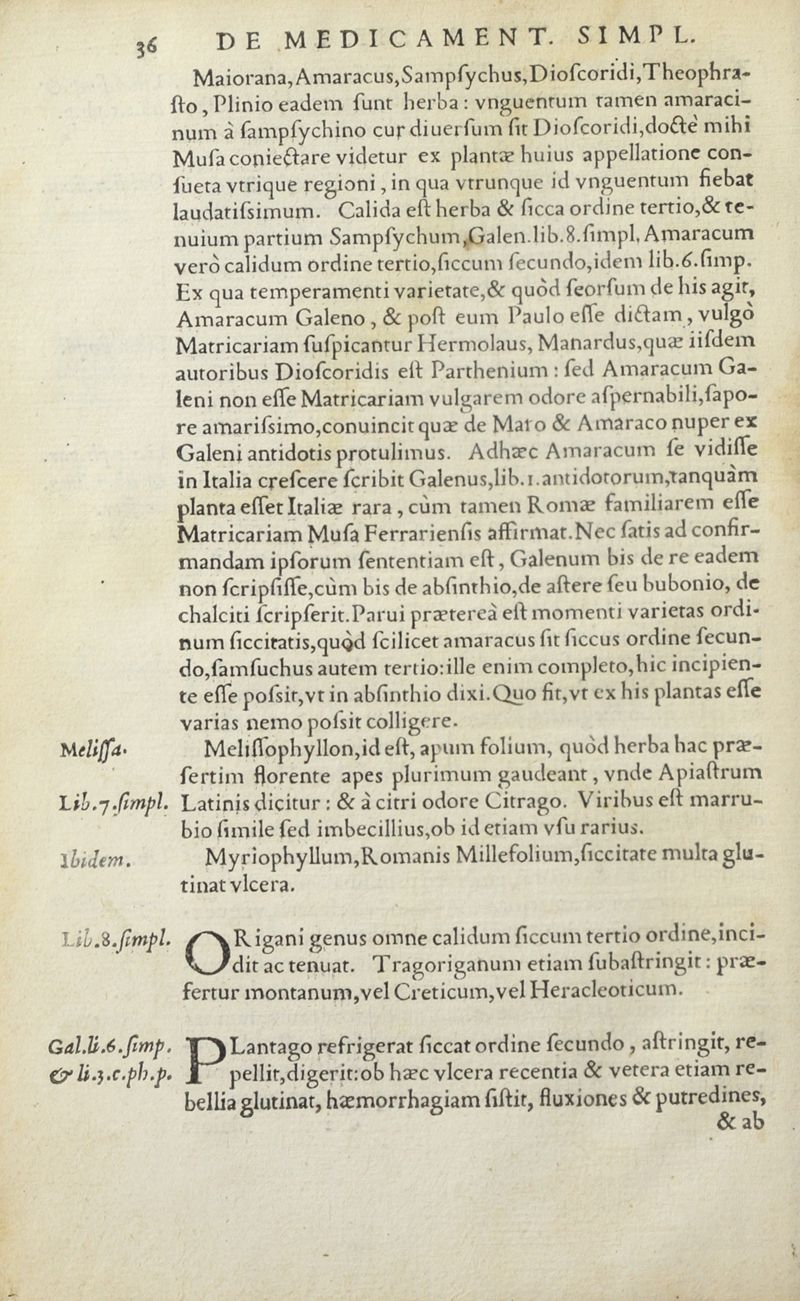 36 DE MEDICAMENT. SIMPL.
Maiorana, Amaracus, Sampſychus, Dioſcoridi, Theophra-
ſto, Plinio eadem ſunt herba: vnguentum tamen amaraci-
num à ſampſychino cur diuerſum ſit Dioſcoridi, doctè mihi
Muſa coniectare videtur ex plantæ huius appellatione con-
ſueta vtrique regioni, in qua vtrunque id vnguentum fiebat
laudatiſsimum. Calida eſt herba & ſicca ordine tertio, & te-
nuium partium Sampſychum, Galen. lib. 8. ſimpl. Amaracum
verò calidum ordine tertio, ſiccum ſecundo, idem lib. 6. ſimp.
Ex qua temperamenti varietate, & quòd ſeorſum de his agit,
Amaracum Galeno, & poſt eum Paulo eſſe dictam, vulgò
Matricariam ſuſpicantur Hermolaus, Manardus, quæ iiſdem
autoribus Dioſcoridis eſt Parthenium: ſed Amaracum Ga-
leni non eſſe Matricariam vulgarem odore aſpernabili, ſapo-
re amariſsimo, conuincit quæ de Maro & Amaraco nuper ex
Galeni antidotis protulimus. Adhæc Amaracum ſe vidiſſe
in Italia creſcere ſcribit Galenus, lib. 1. antidotorum, tanquàm
planta eſſet Italiæ rara, cùm tamen Romæ familiarem eſſe
Matricariam Muſa Ferrarienſis affirmat. Nec ſatis ad confir-
mandam ipſorum ſententiam eſt, Galenum bis de re eadem
non ſcripſiſſe, cùm bis de abſinthio, de aſtere ſeu bubonio, de
chalciti ſcripſerit. Parui prætereà eſt momenti varietas ordi-
num ſiccitatis, quòd ſcilicet amaracus ſit ſiccus ordine ſecun-
do, ſamſuchus autem tertio: ille enim completo, hic incipien-
te eſſe poſsit, vt in abſinthio dixi. Quo fit, vt ex his plantas eſſe
varias nemo poſsit colligere.
Meliſſa. Meliſſophyllon, id eſt, apum folium, quòd herba hac præ-
ſertim florente apes plurimum gaudeant, vnde Apiaſtrum
Lib. 7. ſimpl. Latinis dicitur: & à citri odore Citrago. Viribus eſt marru-
bio ſimile ſed imbecillius, ob id etiam vſu rarius.
Ibidem. Myriophyllum, Romanis Millefolium, ſiccitate multa glu-
tinat vlcera.
Lib. 8. ſimpl. ORigani genus omne calidum ſiccum tertio ordine, inci-
dit ac tenuat. Tragoriganum etiam ſubaſtringit: præ-
fertur montanum, vel Creticum, vel Heracleoticum.
Gal. li. 6. ſimp. PLantago refrigerat ſiccat ordine ſecundo, aſtringit, re-
& li. 3. c. ph. p. pellit, digerit: ob hæc vlcera recentia & vetera etiam re-
bellia glutinat, hæmorrhagiam ſiſtit, fluxiones & putredines,
& ab